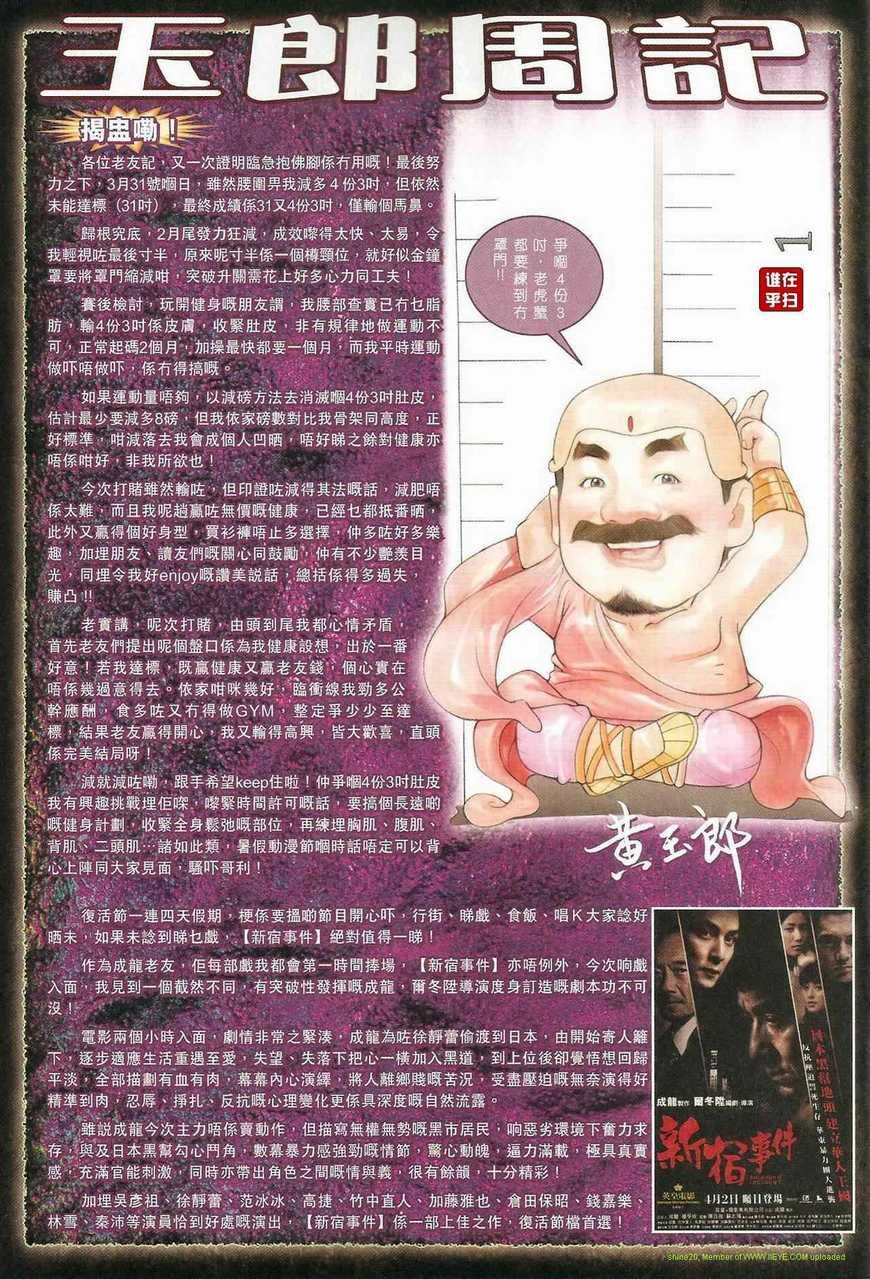 玉郎周記
揭盅嘞！
各位老友記，又一次證明臨急抱佛腳係冇用嘅！最後努
力之下，3月31號嗰日，雖然腰圍畀我減多４份3吋，但依然
未能達標（31吋），最終成績係31又4份3吋，僅輸個馬鼻。
歸根究底，2月尾發力狂減，成效嚟得太快、太易，令
我輕視咗最後寸半，原來呢寸半係一個樽頸位，就好似金鐘
罩要將罩門縮減咁，突破升關需花上好多心力同工夫！
賽後檢討，玩開健身嘅朋友謂，我腰部查實已冇乜脂
肪，輸4份3吋係皮膚，收緊肚皮，非有規律地做運動不
可，正常起碼2個月，加操最快都要一個月，而我平時運動
做吓唔做吓，係冇得搞嘅。
如果運動量唔夠，以減磅方法去消滅嗰4份3吋肚皮，
估計最少要減多8磅，但我依家磅數對比我骨架同高度，正
好標準，咁減落去我會成個人凹晒，唔好睇之餘對健康亦
唔係咁好，非我所欲也！
今次打賭雖然輸咗，但印證咗減得其法嘅話，減肥唔
係太難，而且我呢趟贏咗無價嘅健康，已經乜都抵番晒，
此外又贏得個好身型，買衫褲唔止多選擇，仲多咗好多樂
趣，加埋朋友、讀友們嘅關心同鼓勵，仲有不少艷羨目
光，同埋令我好enjoy嘅讚美説話，總括係得多過失，
賺凸!!
老實講，呢次打賭，由頭到尾我都心情矛盾，
首先老友們提出呢個盤口係為我健康設想，出於一番
好意！若我達標，既贏健康又贏老友錢，個心實在
唔係幾過意得去。依家咁咪幾好，臨衝線我勁多公
幹應酬，食多咗又冇得做GYM，整定爭少少至達
標，結果老友贏得開心，我又輸得高興，皆大歡喜，直頭
係完美結局呀！
減就減咗嘞，跟手希望keep住啦！仲爭嗰4份3吋肚皮
我有興趣挑戰埋佢㗎，嚟緊時間許可嘅話，要搞個長遠啲
嘅健身計劃，收緊全身鬆弛嘅部位，再練埋胸肌、腹肌、
背肌、二頭肌…諸如此類，暑假動漫節嗰時話唔定可以背
心上陣同大家見面，騷吓哥利！
復活節一連四天假期，梗係要搵啲節目開心吓，行街、睇戲、食飯、唱Ｋ大家諗好
晒未，如果未諗到睇乜戲，【新宿事件】絕對值得一睇！
作為成龍老友，佢每部戲我都會第一時間捧場，【新宿事件】亦唔例外，今次响戲
入面，我見到一個截然不同，有突破性發揮嘅成龍，爾冬陞導演度身訂造嘅劇本功不可
沒！
電影兩個小時入面，劇情非常之緊湊，成龍為咗徐靜蕾偷渡到日本，由開始寄人籬
下，逐步適應生活重遇至愛，失望、失落下把心一橫加入黑道，到上位後卻覺悟想回歸
平淡，全部描劃有血有肉，幕幕內心演繹，將人離鄉賤嘅苦況，受盡壓迫嘅無奈演得好
精準到肉，忍辱、掙扎、反抗嘅心理變化更係具深度嘅自然流露。
雖説成龍今次主力唔係賣動作，但描寫無權無勢嘅黑市居民，响惡劣環境下奮力求
存，與及日本黑幫勾心鬥角，數幕暴力感強勁嘅情節，驚心動魄，逼力滿載，極具真實
感，充滿官能刺激，同時亦帶出角色之間嘅情與義，很有餘韻，十分精彩！
加埋吳彥祖、徐靜蕾、范冰冰、高捷、竹中直人、加藤雅也、倉田保昭、錢嘉樂、
林雪、秦沛等演員恰到好處嘅演出，【新宿事件】係一部上佳之作，復活節檔首選！
爭嗰4份3
吋，老虎蟹
都要練到冇
罩門!!
1
谁在
乎扫
黃玉郎
日本黑幫地頭 建立華人王國
成龍製作 爾冬陞編劇·導演
新宿事件
英皇電影
4月2日 矚目登場
shine20, Member of WWW.IIEYE.COM uploaded